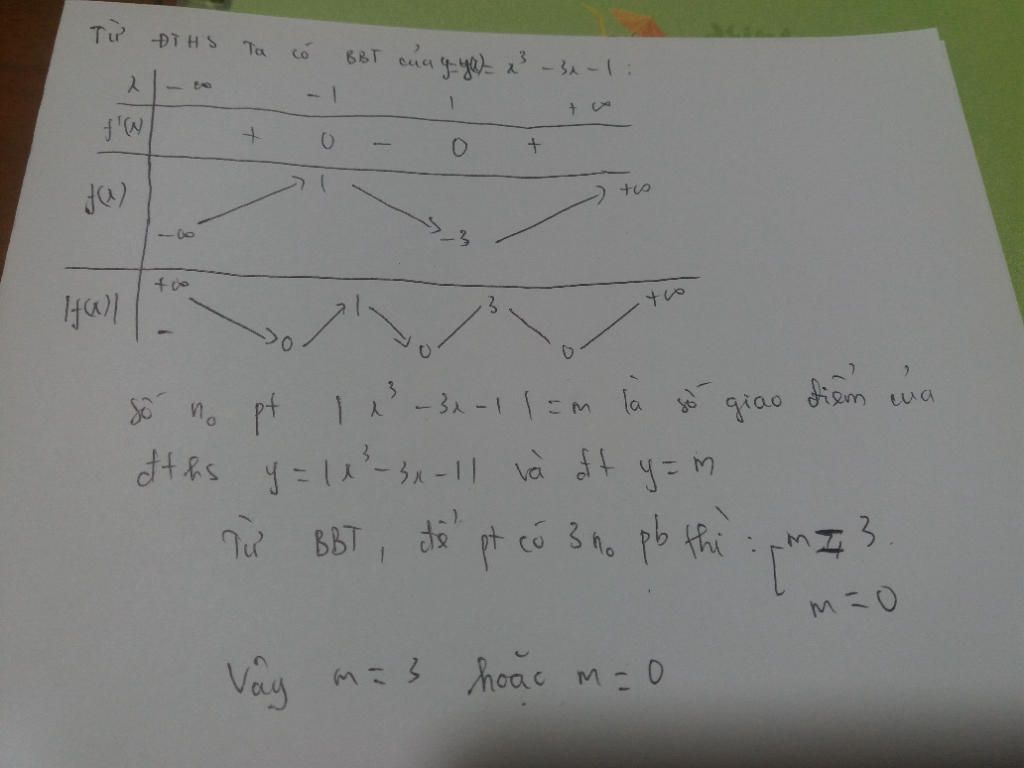 Từ ĐTHS Ta có BBT của y=f(x)= x³ - 3x - 1 :
x | -∞ -1 1 +∞
f'(x) | + 0 - 0 +
f(x) | -∞ ↗ 1 ↘ -3 ↗ +∞
|f(x)| | +∞ ↘ 0 ↗ 1 ↘ 0 / 3 \ 0 / +∞
-
Số no pt |x³ - 3x - 1| = m là số giao điểm của
đths y = |x³ - 3x - 1| và đt y = m
Từ BBT, để pt có 3 no pb thì : [ m = 3.
m = 0
Vậy m = 3 hoặc m = 0